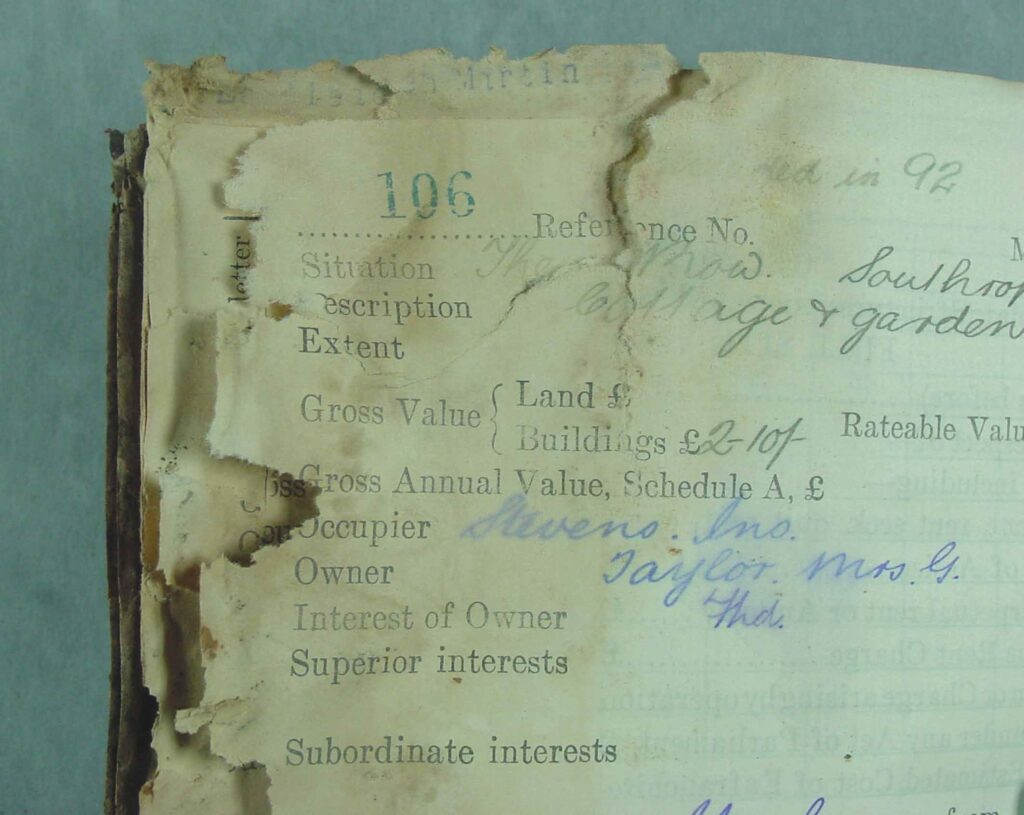 Mirtin
ded in 92
106
Reference No. M
letter
Situation The Mow. Southrop
Description Cottage & garden
Extent
Gross Value { Land £
Buildings £2-10/- Rateable Valu
Gross Annual Value, Schedule A, £
Occupier Stevens. Jno.
Owner Taylor. Mrs. G.
Interest of Owner Fhd.
Superior interests
Subordinate interests
from